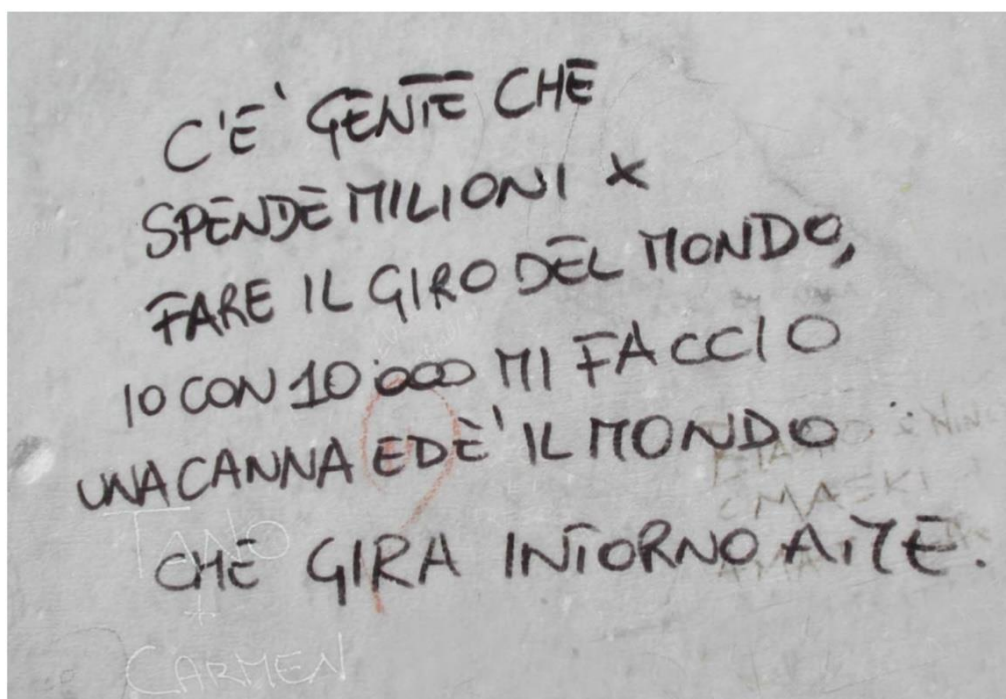 C'E' GENTE CHE
SPENDE MILIONI X
FARE IL GIRO DEL MONDO,
IO CON 10000 MI FACCIO
UNA CANNA ED E' IL MONDO
CHE GIRA INTORNO A ME.
TANO
+
CARMEN